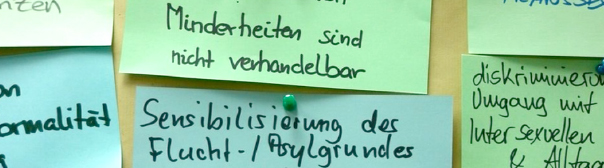 Minderheiten sind
nicht verhandelbar
ormalität
Sensibilisierung des
Flucht-/Asylgrundes
Umgang mit
Intersexuellen